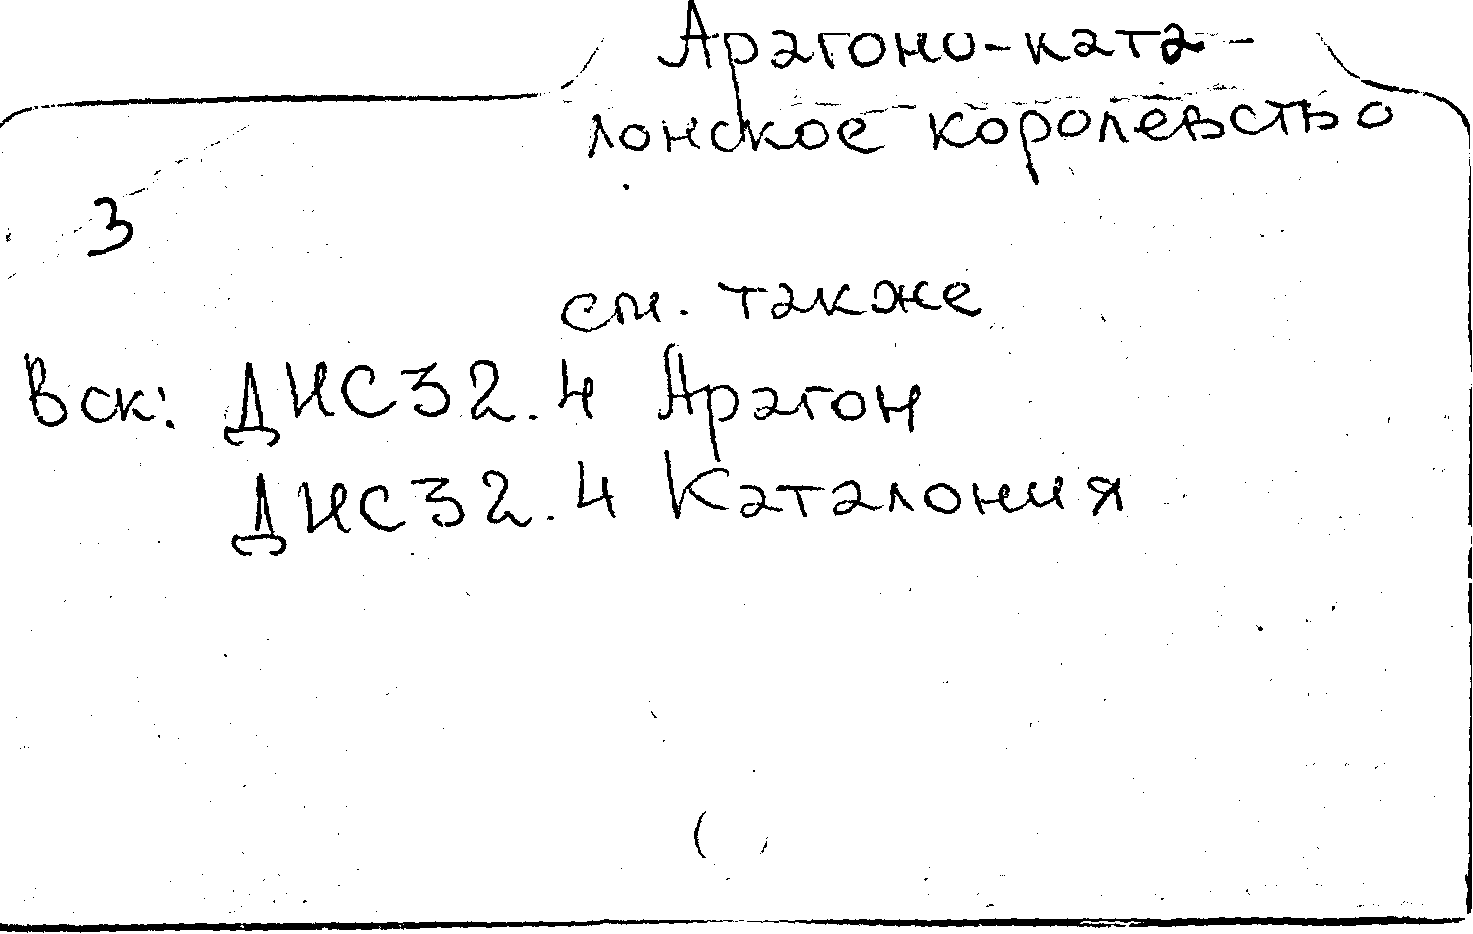 Арагоно-ката-
лонское королевство
3
см. также
Вск: ДИС32.4 Арагон
ДИС32.4 Каталония